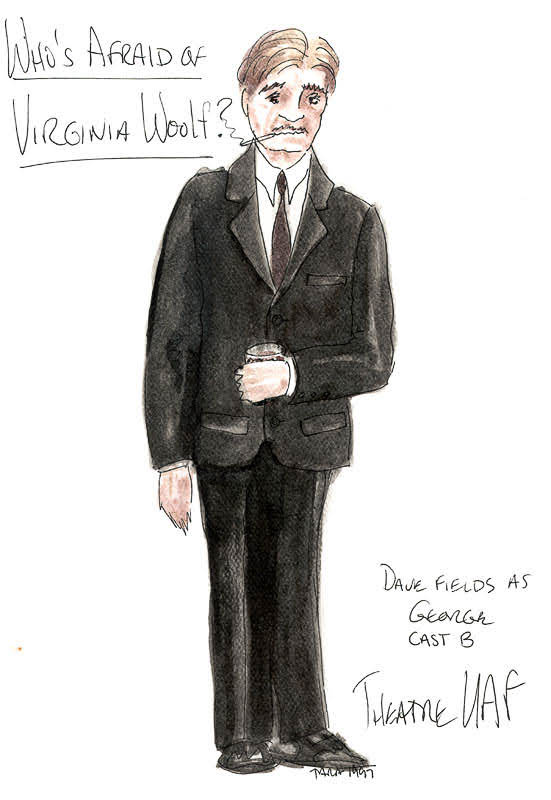 Who's Afraid of
Virginia Woolf?
Dave Fields as
George
Cast B
Theatre UAF
Tara 1997